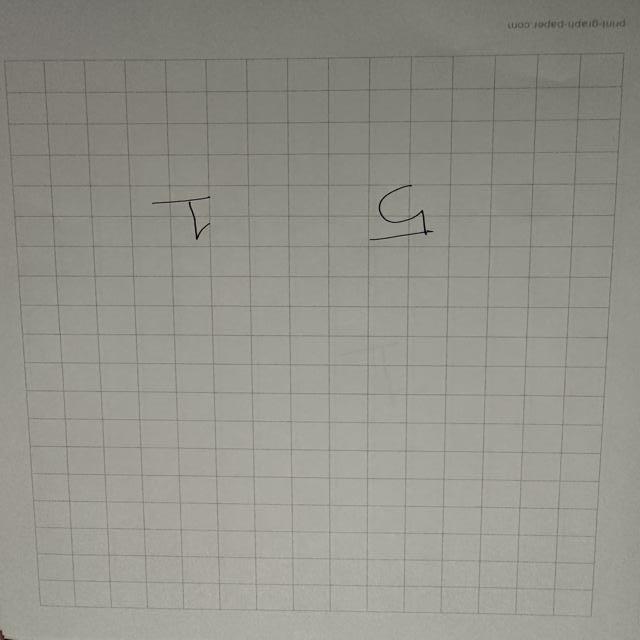 5 1
print-graph-paper.com